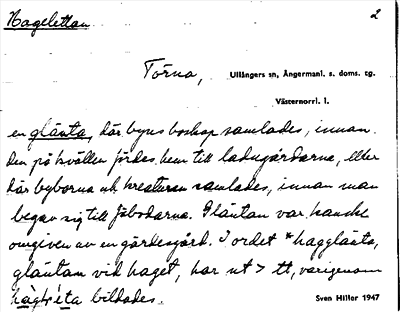 Hagelettan 2
Torna, Ullångers sn, Ångermanl. s. doms. tg.
Västernorrl. l.
en glänta, där byns boskap samlades, innan
den på kvällen fördes hem till ladugårdarna, eller
där byborna och kreaturen samlades, innan man
begav sig till fäbodarna. Gläntan var kanske
omgiven av en gärdesgård. I ordet *hagglänta,
gläntan vid haget, har nt > tt, varigenom
bildades. Sven Hiller 1947